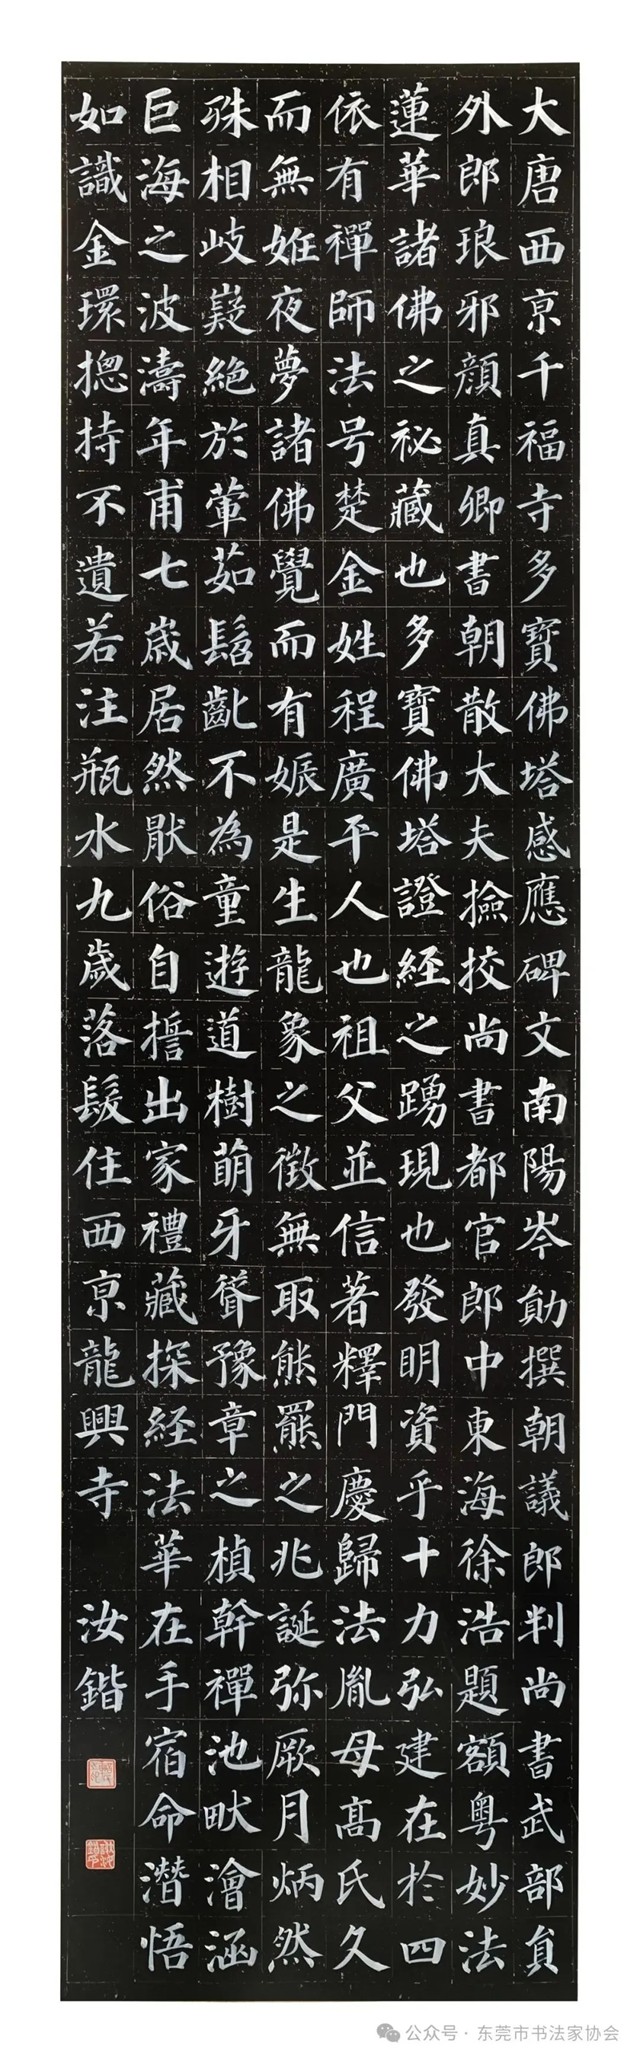 大唐西京千福寺多寶佛塔感應碑文南陽岑勛撰朝議郎判尚書武部員
外郎琅邪顏真卿書朝散大夫撿挍尚書都官郎中東海徐浩題額粵妙法
蓮華諸佛之祕藏也多寶佛塔證經之踴現也發明資乎十力弘建在於四
依有禪師法号楚金姓程廣平人也祖父並信著釋門慶歸法胤母高氏久
而無姙夜夢諸佛覺而有娠是生龍象之徵無取熊羆之兆誕弥厥月炳然
殊相岐嶷絕於葷茹髫齔不為童遊道樹萌牙聳豫章之楨幹禪池畎澮涵
巨海之波濤年甫七歲居然猒俗自誓出家禮藏探經法華在手宿命潛悟
如識金環摠持不遺若注瓶水九歲落髮住西京龍興寺
汝鍇
公众号·东莞市书法家协会